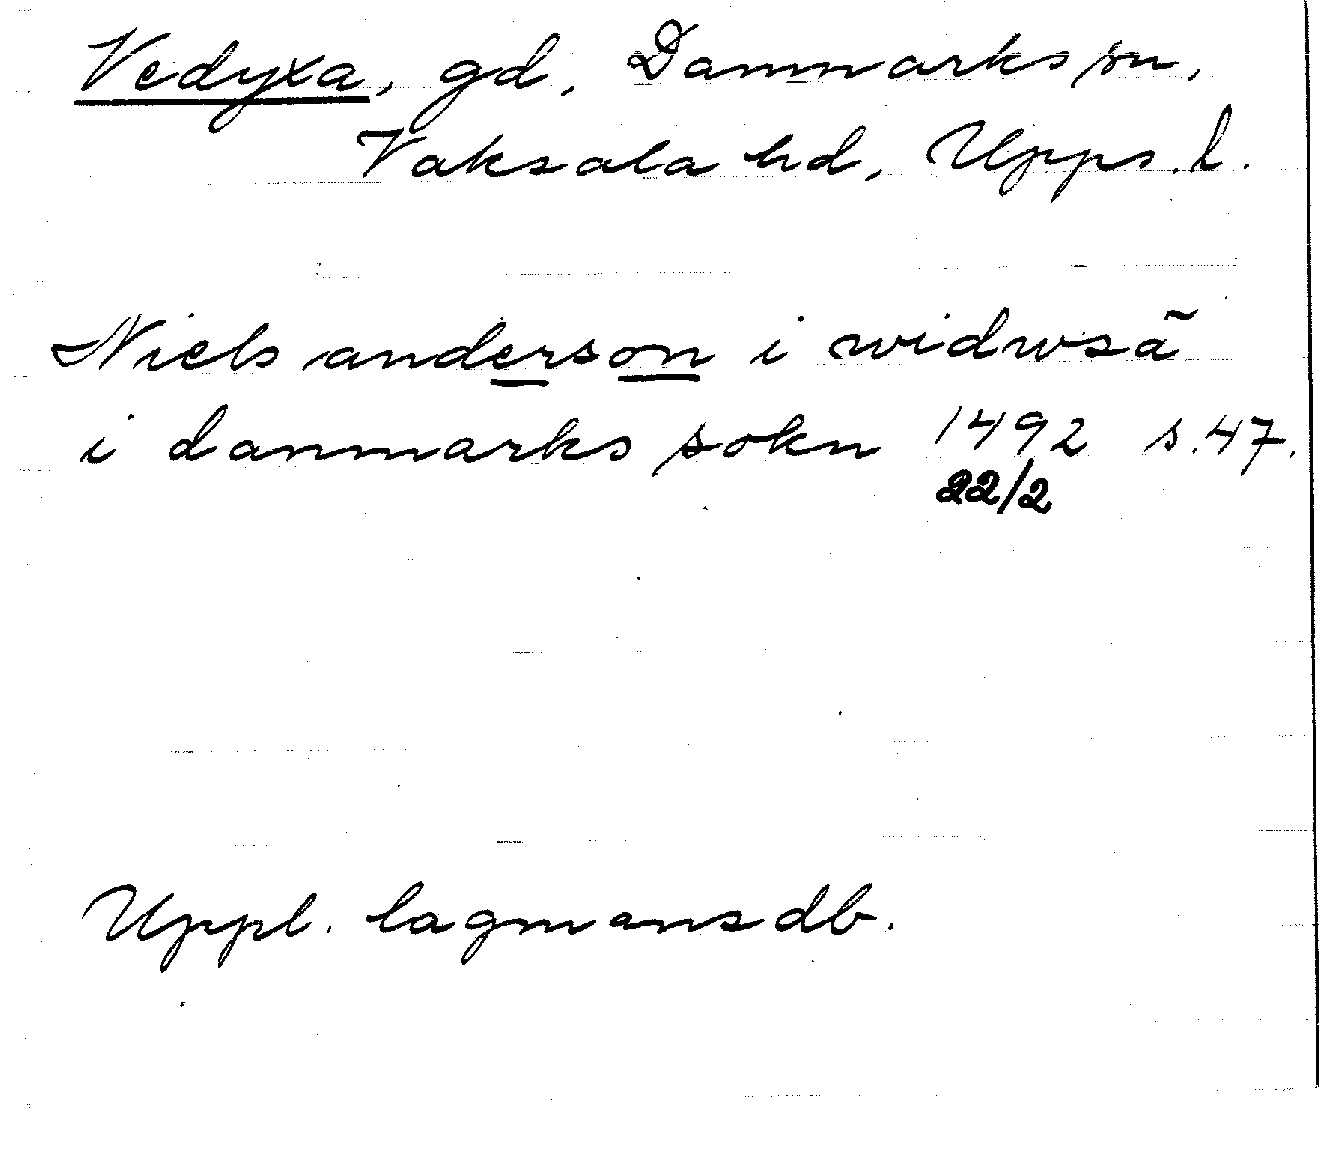 Vedyxa, gd, Danmarks sn,
Vaksala hd, Upps. l.
Niels anderson i widwsã
i danmarks sokn 1492 s. 47.
22/2
Uppl. lagmansdb.